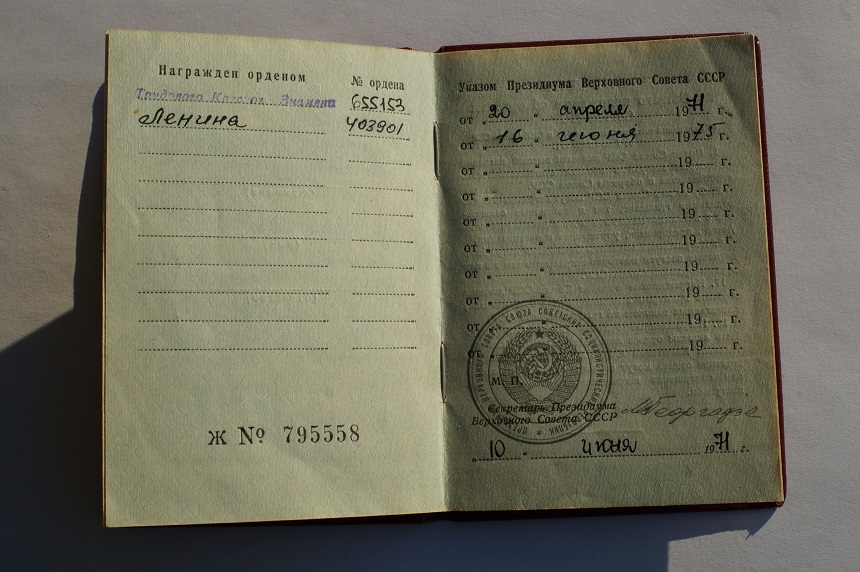 Награжден орденом
№ ордена
Трудового Красног. Знамени 655153
Ленина 403901
Ж № 795558
Указом Президиума Верховного Совета СССР
от „ 20 “ апреля 1971 г.
от „ 16 “ июня 1975 г.
от „ “ 19 г.
от „ “ 19 г.
от „ “ 19 г.
от „ “ 19 г.
от „ “ 19 г.
от „ “ 19 г.
от „ “ 19 г.
от „ “ 19 г.
М. П.
Секретарь Президиума
Верховного Совета СССР
МГеоргадзе
„ 10 “ июня 1971 г.